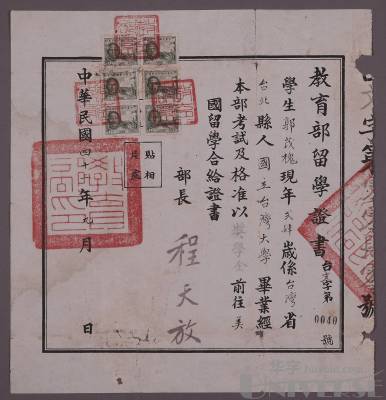 教育部留學證書
台字第0040號
學生郭茂槐現年貳肆歲係台灣省
台北縣人國立台灣大學畢業經
本部考試及格准以獎學金前往美
國留學合給證書
部長 程天放
貼相
片處
中華民國四十年九月 日